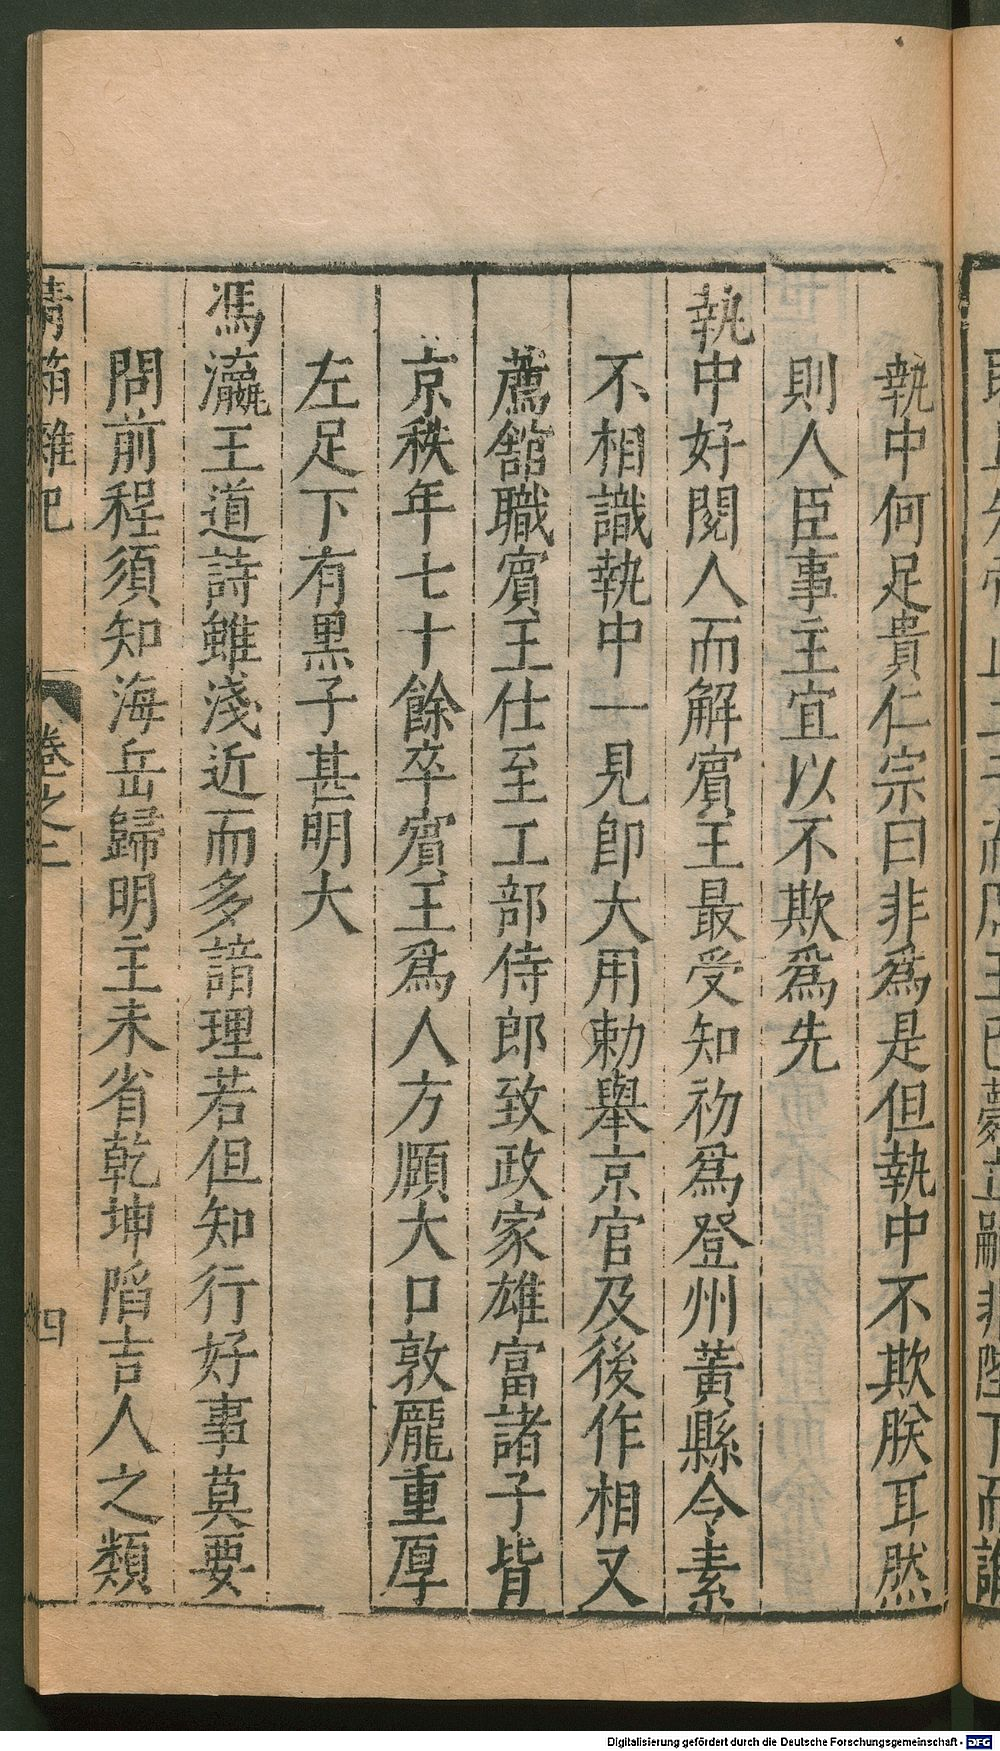 執中何足貴仁宗曰非爲是但執中不欺朕耳然
則人臣事主宜以不欺爲先
執中好閱人而解賔王最受知初爲登州黃縣令素
不相識執中一見卽大用勅舉京官及後作相又
薦舘職賔王仕至工部侍郎致政家雄富諸子皆
京秩年七十餘卒賔王爲人方頤大口敦龐重厚
左足下有黑子甚明大
馮瀛王道詩雖淺近而多諳理若但知行好事莫要
問前程須知海岳歸明主未省乾坤陷吉人之類
青箱雜記 卷之二 四
Digitalisierung gefördert durch die Deutsche Forschungsgemeinschaft - DFG